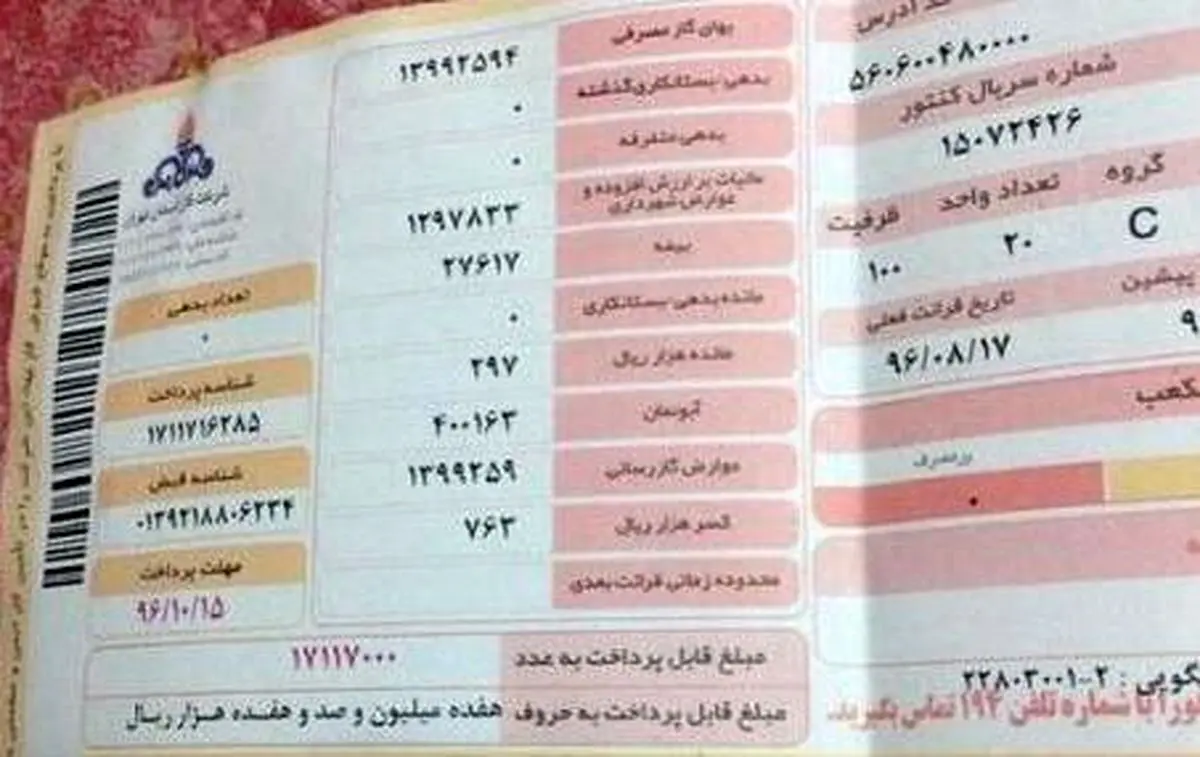 کد آدرس
۵۶۰۶۰۰۴۸۰۰۰۰
شماره سریال کنتور
۱۵۰۷۲۴۲۶
گروه تعداد واحد ظرفیت
C ۲۰ ۱۰۰
پیشین تاریخ قرائت فعلی
۹ ۹۶/۰۸/۱۷
پرمصرف
۰
گویی : ۲-۲۲۸۰۳۰۰۱
با شماره تلفن ۱۹۴ تماس بگیرید.
بهای گاز مصرفی ۱۳۹۹۲۵۹۴
بدهی، بستانکاری گذشته ۰
بدهی متفرقه ۰
مالیات بر ارزش افزوده و
عوارض شهرداری ۱۲۹۷۸۳۳
بیمه ۲۷۶۱۷
مانده بدهی، بستانکاری ۰
مانده هزار ریال ۲۹۷
آبونمان ۴۰۰۱۶۳
عوارض گازرسانی ۱۳۹۹۲۵۹
کسر هزار ریال ۷۶۳
محدوده زمانی قرائت بعدی
شرکت گاز استان تهران
تعداد بدهی
۰
شناسه پرداخت
۱۷۱۱۷۱۶۲۸۵
شناسه قبض
۰۱۳۹۲۱۸۸۰۶۲۳۴
مهلت پرداخت
۹۶/۱۰/۱۵
مبلغ قابل پرداخت به عدد ۱۷۱۱۷۰۰۰
مبلغ قابل پرداخت به حروف هفده میلیون و صد و هفده هزار ریال